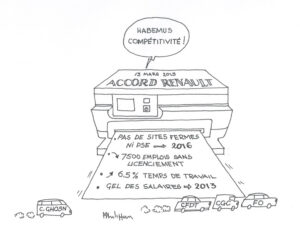 HABEMUS
COMPÉTITIVITÉ !
13 MARS 2013
ACCORD RENAULT
PAS DE SITES FERMÉS
NI PSE → 2016
• ↘ 7500 EMPLOIS SANS
LICENCIEMENT
• ↗ 6.5% TEMPS DE TRAVAIL
• GEL DES SALAIRES → 2013
C. GHOSN
CFDT
CGC
FO